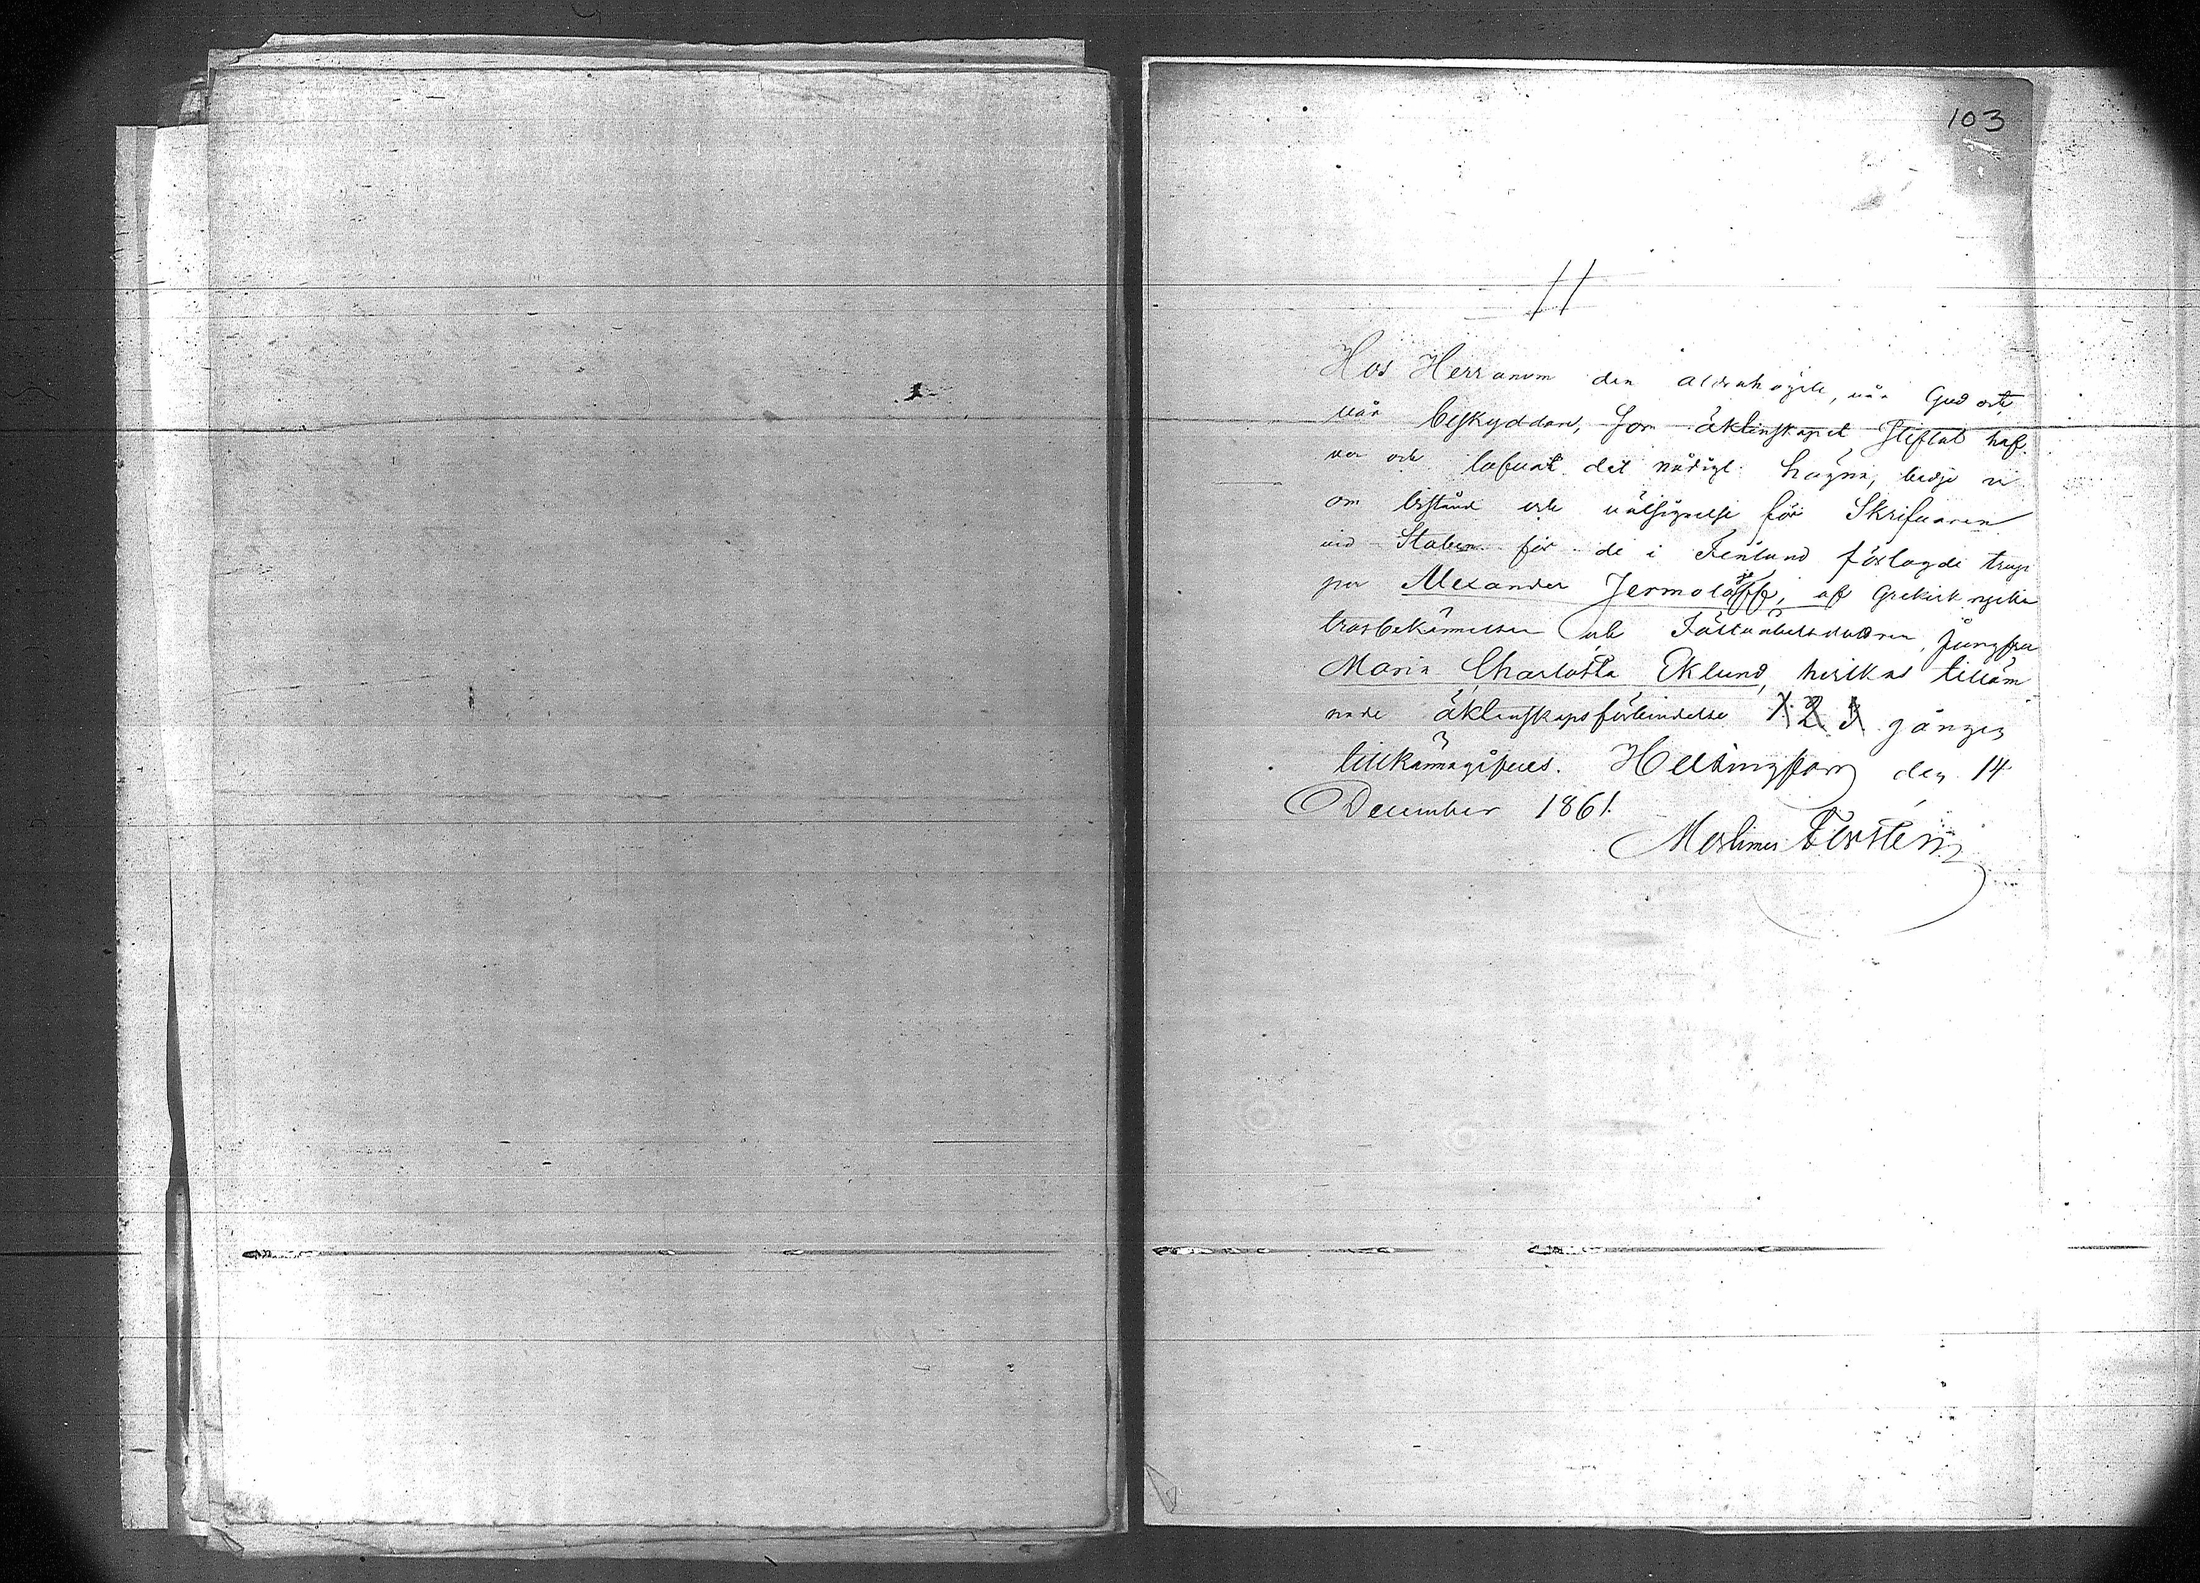 103
Hos Herranom den aldrahögste, vår Gud och
vår beskyddare, som äktenskapet stiftat haf-
ver och lofvat det nådigt hägna, bedje vi
om bistånd och välsignelse för Skrifvaren
vid Staben för de i Finland förlagde trup
per Alexander Jermolajeff, af Grekisk ryska
trosbekännelsen och Jungfru
Maria Charlotta Eklund, hvilkas tilläm
nade äktenskapsförbindelse 1 2 3 gången
tillkännagifves. Helsingfors den 14
December 1861.